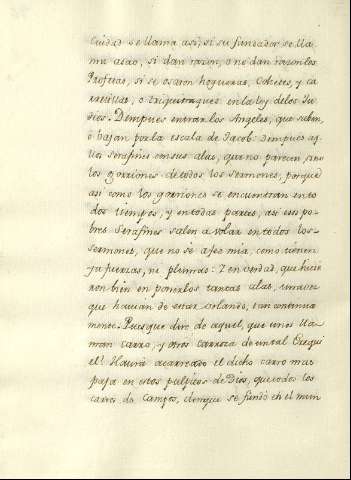 Ciudad se llama asi, si su fundador se lla-
ma asao, si dan razon, o no dan razon los
Profetas, si se osaron hogueras, Cohetes, y ca-
rretillas, o triquitraques en la ley de los Ju-
dios. Despues entrar los Angeles, que suben,
ò bajan por la escala de Jacob: despues aq-
llos serafines con sus alas, que no parecen, sino
los gorriones de todos los Sermones; porque
asi como los gorriones se encuentran en to-
dos tiempos, y en todas partes, asi esos po-
bres Serafines salen a volar en todos los
Sermones, que no se afee mia, como tienen
ya fuerzas, ni plumas: Y en verdad, que hicie
ron bien en ponerlos tantas alas, una vez
que havian de estar volando, tan continua
mente. Pues que dire de aquel, que unos lla-
man carro, y otros carreta de un tal Ezequi
el? Havrà acarreado el dicho carro mas
paja en estos pulpitos de Dios, que todos los
carros de Campos, desque se fundò en el mun